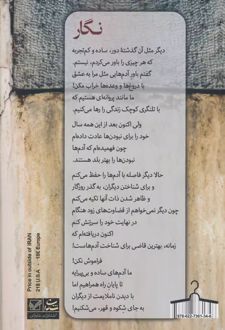 نگار
دیگر مثل آن گذشتهٔ دور، ساده و کم‌تجربه
که هر چیزی را باور می‌کردم، نیستم.
گفتم باور آدم‌هایی مثل مرا به عشق
با دروغ‌ها و وعده‌ها خراب مکن!
ما مانند پروانه‌ای هستیم که
با تلنگری کوچک زندگی را رها می‌کنیم.
ولی اکنون بعد از این همه سال
خود را برای نبودن‌ها عادت داده‌ام
چون فهمیده‌ام که آدم‌ها
نبودن‌ها را بهتر بلد هستند.
حالا دیگر فاصله با آدم‌ها را حفظ می‌کنم
و برای شناختن دیگران، به گذر روزگار
و ظاهر شدن ذات آنها تکیه می‌کنم
چون دیگر نمی‌خواهم از قضاوت‌های زود هنگام
در نهایت خود را سرزنش کنم
اکنون دریافته‌ام که
زمانه، بهترین قاضی برای شناخت آدم‌هاست!
فراموش نکن!
ما آدم‌های ساده و بی‌پیرایه
تا پایان راه همراهیم اما
با دیدن ناملایمت از دیگران
به جای شکوه و قهر، می‌شکنیم!
Price in outside of IRAN
21$ U.S.A - 18€ Europe